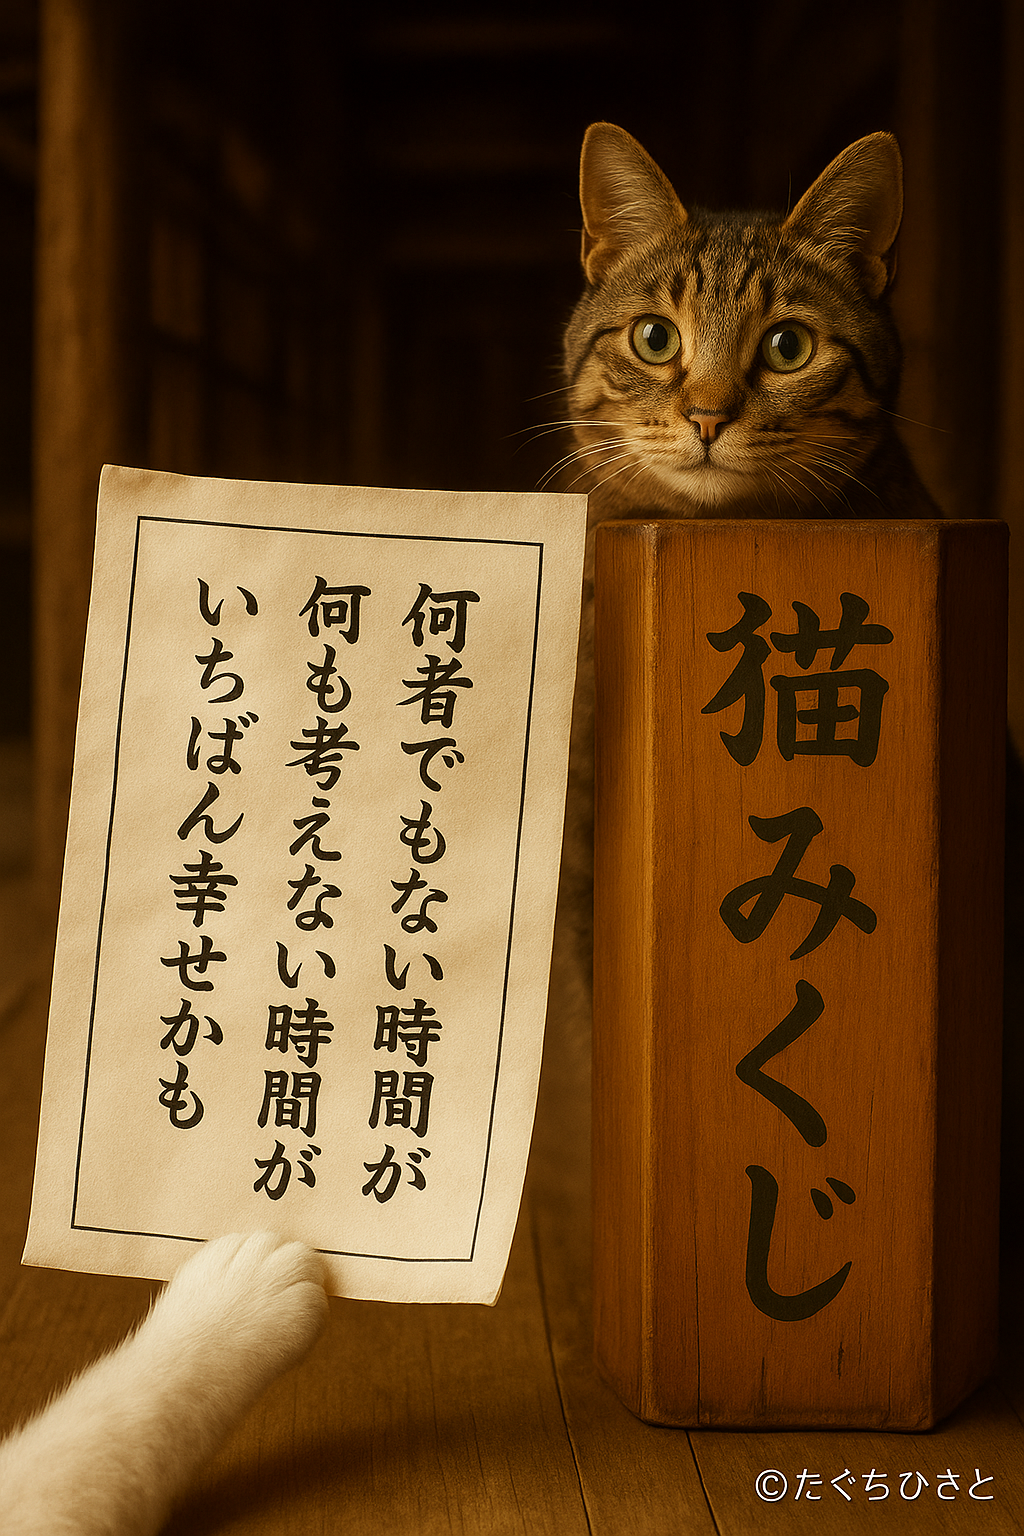 何者でもない時間が
何も考えない時間が
いちばん幸せかも
猫みくじ
©たぐちひさと